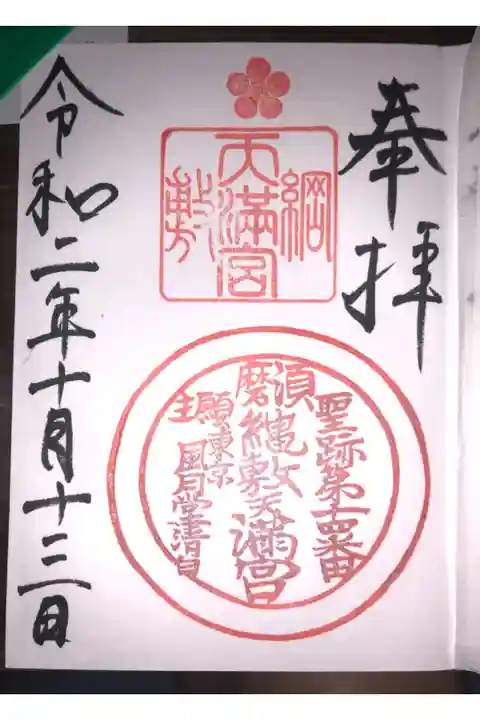 奉拝
綱敷
天満宮
聖跡第十四番
須磨縄敷天満宮
願主
東京
風月堂
令和二年十月十三日